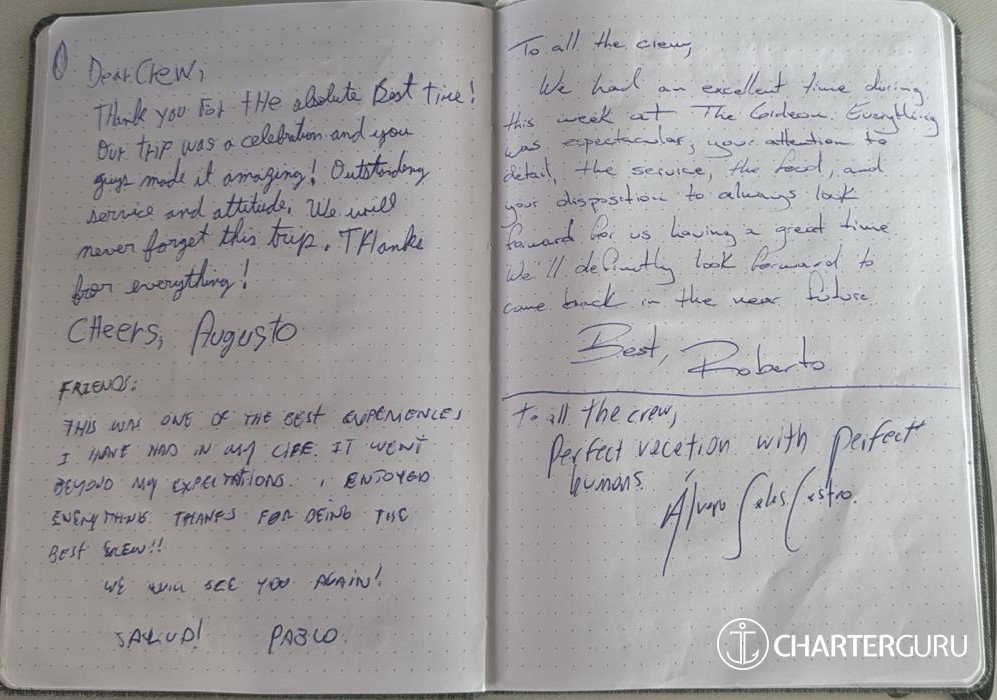 Dear Crew,
Thank you for the absolute Best time!
Our trip was a celebration and you
guys made it amazing! Outstanding
service and attitude. We will
never forget this trip. Thanks
for everything!
Cheers, Augusto
FRIENDS:
THIS WAS ONE OF THE BEST EXPERIENCES
I HAVE HAD IN MY LIFE. IT WENT
BEYOND MY EXPECTATIONS. I ENJOYED
EVERYTHING. THANKS FOR BEING THE
BEST CREW!!
WE WILL SEE YOU AGAIN!
SALUD! PABLO
To all the crew,
We had an excellent time during
this week at The. Everything
was espectacular, your attention to
detail, the service, the food, and
your disposition to always look
forward for us having a great time.
We'll definitly look forward to
come back in the near future.
Best, Roberto
To all the crew,
Perfect vacation with perfect
humans.
Alvaro Castro.
CHARTERGURU